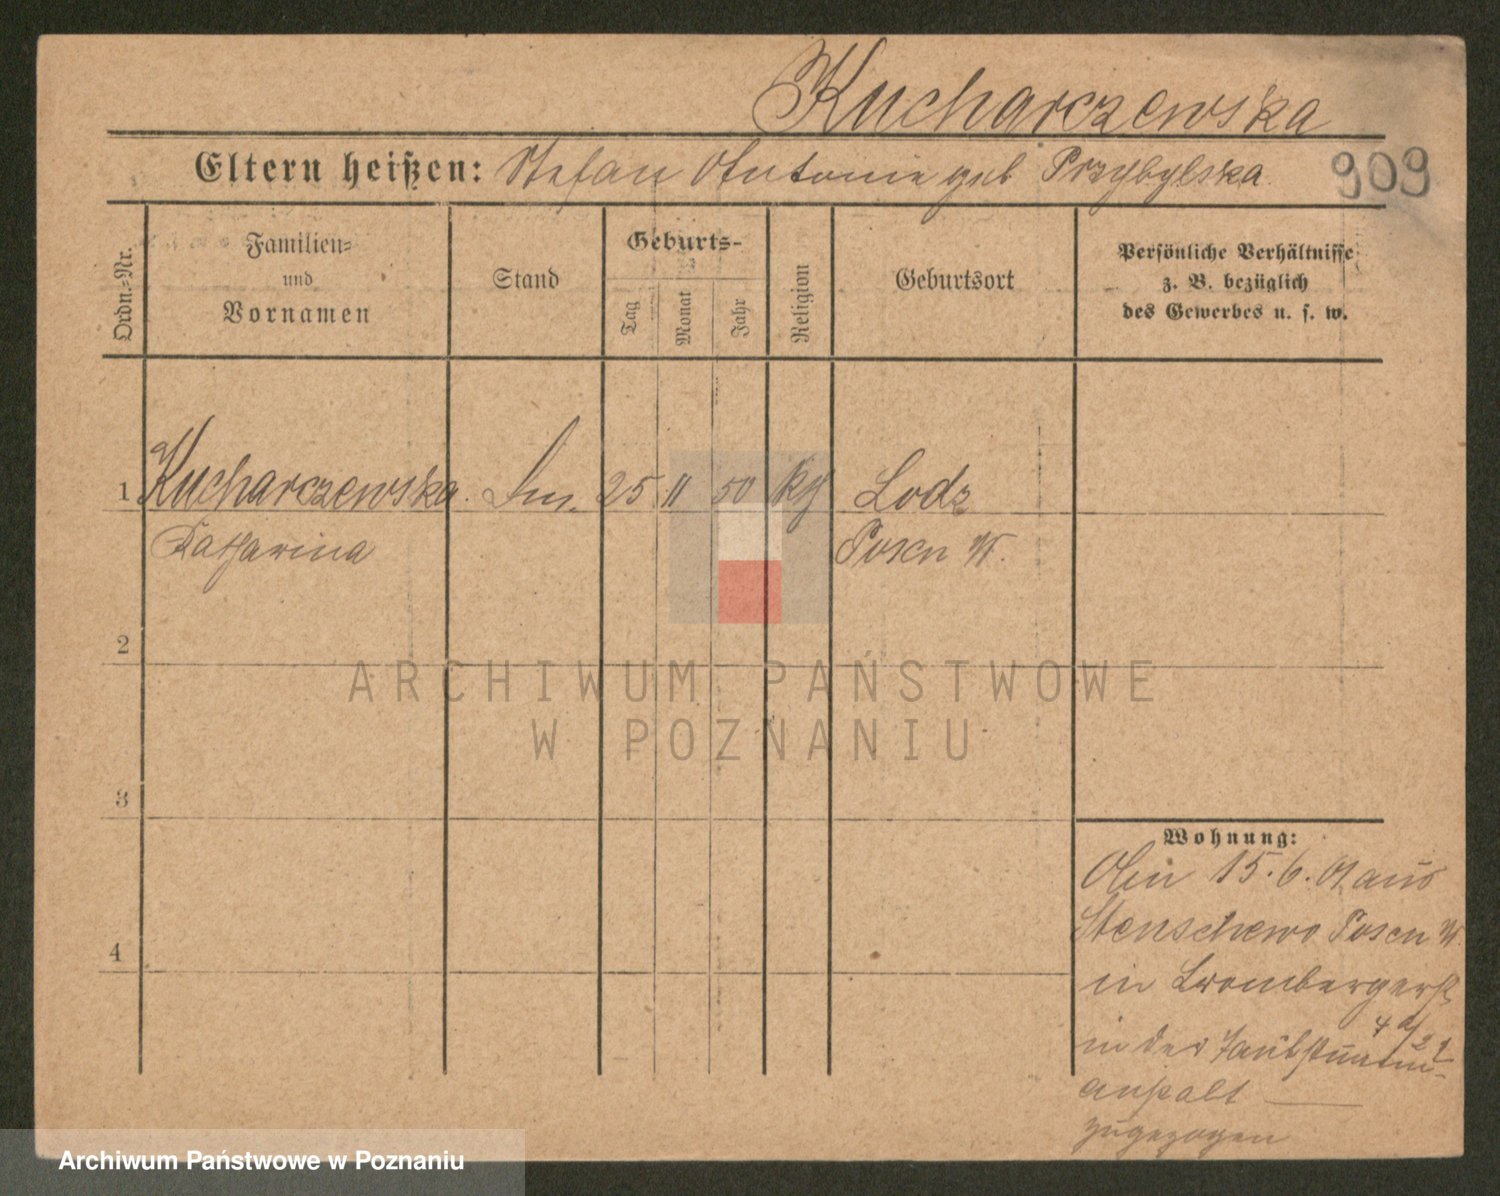 Kucharczewska
Eltern heißen: Stefan Antonie geb Przybylska.
909
Ordn.-Nr.
Familien-
und
Vornamen
Stand
Geburts-
Tag
Monat
Jahr
Religion
Geburtsort
Persönliche Verhältnisse
z. B. bezüglich
des Gewerbes u. s. w.
1 Kucharczewska. 25 11 50 Lodz
Katharina Posen W.
2
3
4
Wohnung:
Am 15.6. aus
Stenschewo Posen W.
in Brombergerst
in der Taubstummen-
anstalt
zugezogen
ARCHIWUM PAŃSTWOWE
W POZNANIU
Archiwum Państwowe w Poznaniu